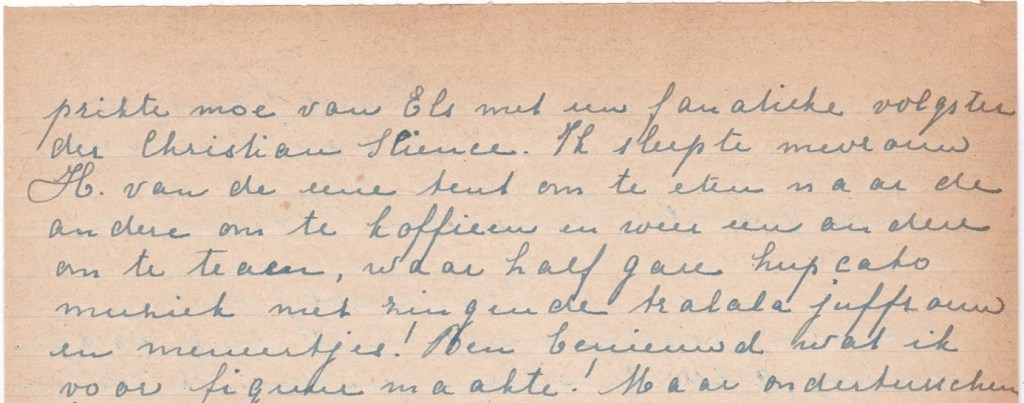 prikte moe van Els met een fanatieke volgster
der Christian Science. Ik sleepte mevrouw
H. van de eene tent om te eten naar de
andere om te koffieen en weer een andere
om te teaen, waar half gare hupcato
muziek met zingende tralala juffrouw
en meneertjes! Ben benieuwd wat ik
voor figuur maakte! Maar ondertusschen